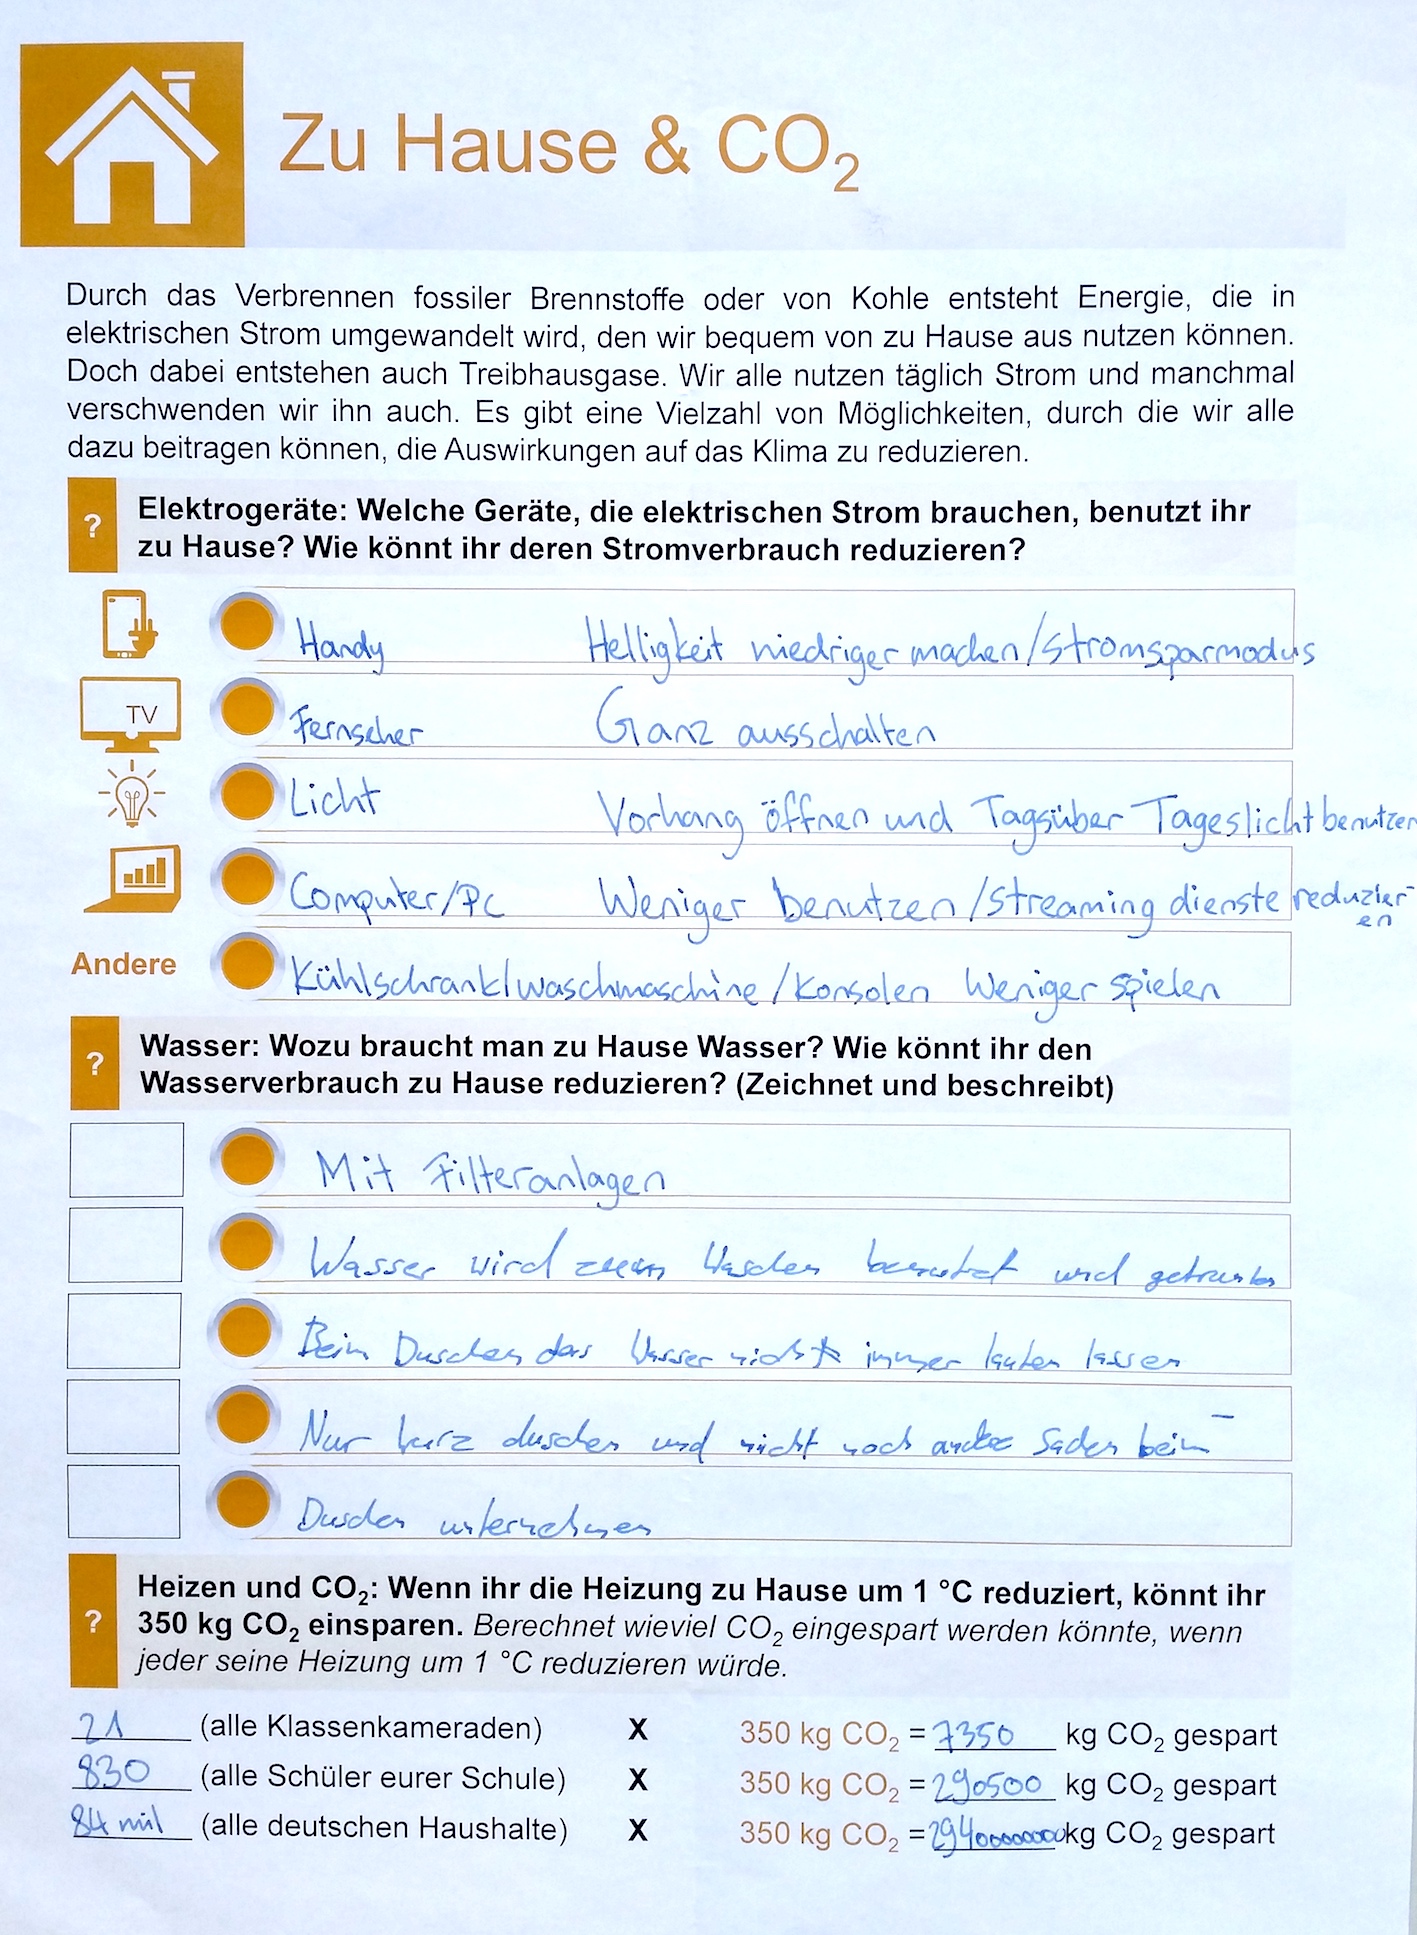 Zu Hause & CO₂
Durch das Verbrennen fossiler Brennstoffe oder von Kohle entsteht Energie, die in
elektrischen Strom umgewandelt wird, den wir bequem von zu Hause aus nutzen können.
Doch dabei entstehen auch Treibhausgase. Wir alle nutzen täglich Strom und manchmal
verschwenden wir ihn auch. Es gibt eine Vielzahl von Möglichkeiten, durch die wir alle
dazu beitragen können, die Auswirkungen auf das Klima zu reduzieren.
? Elektrogeräte: Welche Geräte, die elektrischen Strom brauchen, benutzt ihr
zu Hause? Wie könnt ihr deren Stromverbrauch reduzieren?
Handy Helligkeit niedriger machen/Stromsparmodus
TV Fernseher Ganz ausschalten
Licht Vorhang öffnen und Tagsüber Tageslicht benutzen
Computer/Pc Weniger benutzen/Streaming dienste reduzier-
en
Andere Kühlschrank/waschmaschine/Konsolen Weniger spielen
? Wasser: Wozu braucht man zu Hause Wasser? Wie könnt ihr den
Wasserverbrauch zu Hause reduzieren? (Zeichnet und beschreibt)
Mit Filteranlagen
Wasser wird zum Waschen benutzt und getrunken
Beim Duschen das Wasser nicht immer laufen lassen
Nur kurz duschen und nicht noch andere Sachen beim
Duschen unternehmen
? Heizen und CO₂: Wenn ihr die Heizung zu Hause um 1 °C reduziert, könnt ihr
350 kg CO₂ einsparen. Berechnet wieviel CO₂ eingespart werden könnte, wenn
jeder seine Heizung um 1 °C reduzieren würde.
21 (alle Klassenkameraden) X 350 kg CO₂ = 7350 kg CO₂ gespart
830 (alle Schüler eurer Schule) X 350 kg CO₂ = 290500 kg CO₂ gespart
84 mil (alle deutschen Haushalte) X 350 kg CO₂ = 29400000000 kg CO₂ gespart